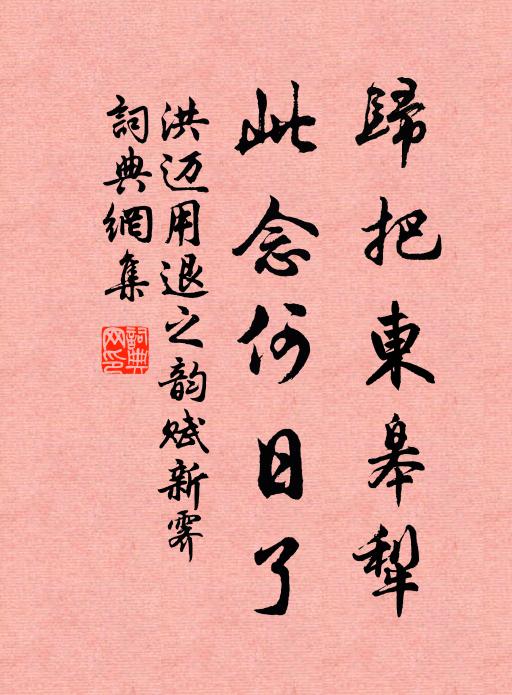 歸把東皋犁
此念何日了
洪迈用退之韵赋新霁
詞典網集
詞典网印